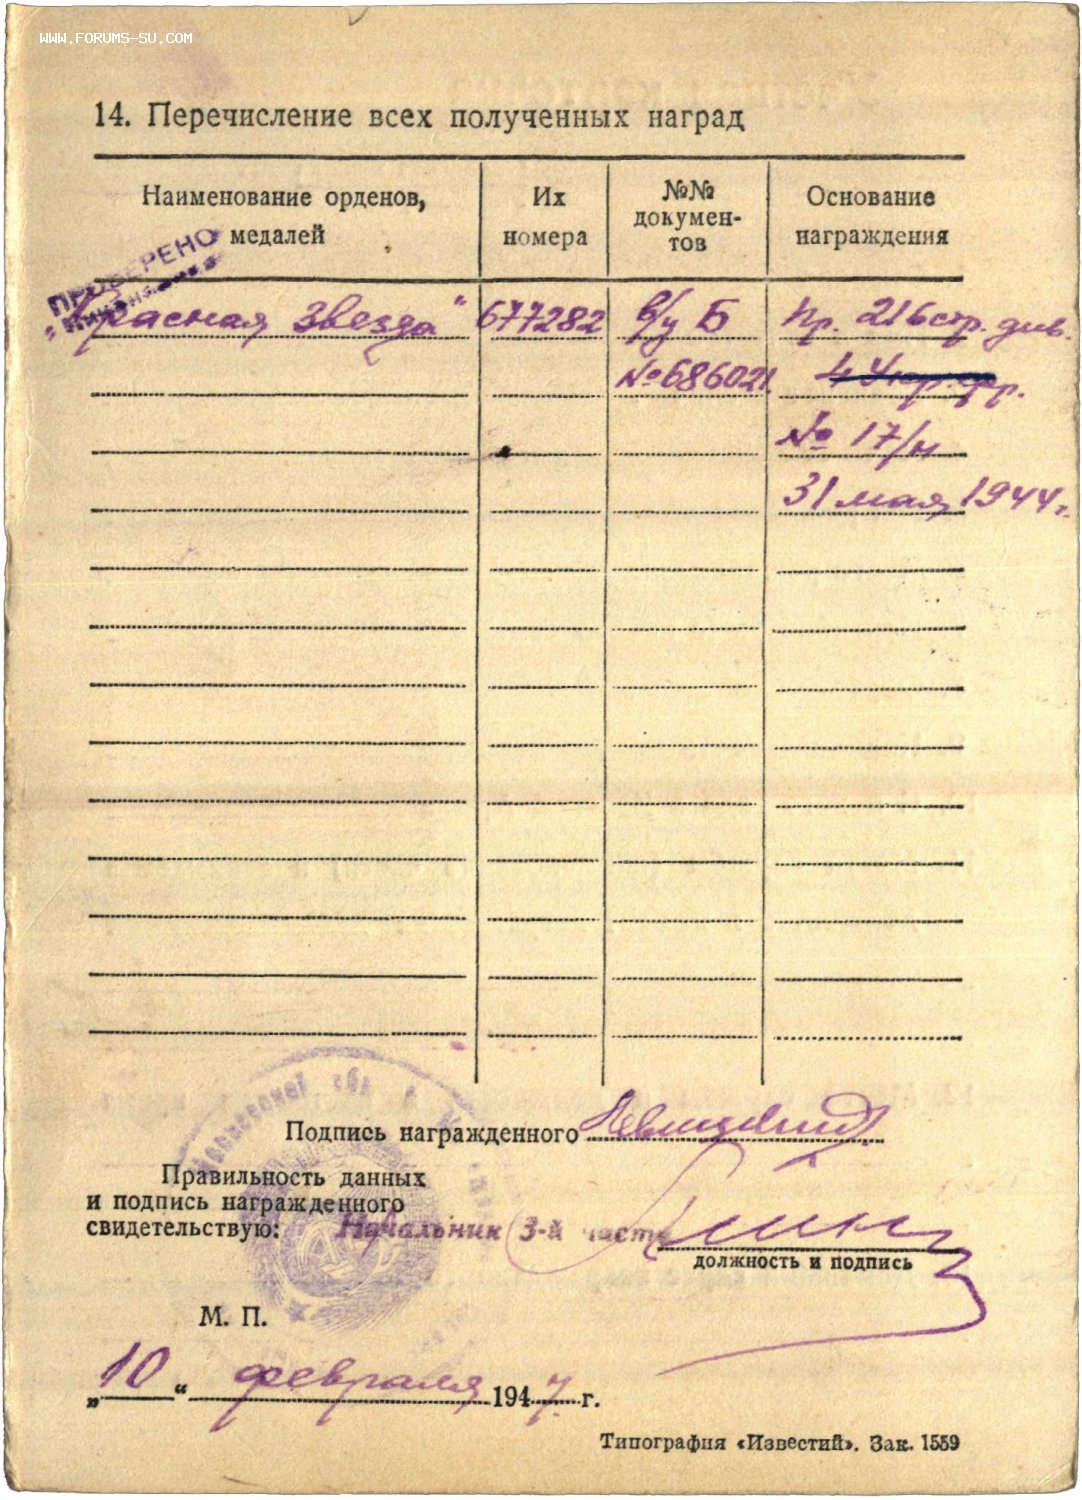 WWW.FORUMS-SU.COM
14. Перечисление всех полученных наград
Наименование орденов, медалей
Их номера
№№ докумен-тов
Основание награждения
ПРОВЕРЕНО
„Красная Звезда" 677282 в/у Б Пр. 216 стр. див.
№ 686021. 4 Укр. фр.
№ 17/н
31 мая 1944 г.
Подпись награжденного
Правильность данных
и подпись награжденного
свидетельствую: Начальник 3-й части
должность и подпись
М. П.
„10" февраля 1947 г.
Типография «Известий». Зак. 1559